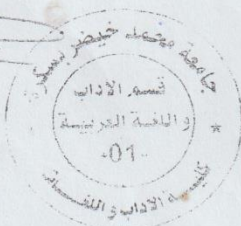 جامعة محمد خيضر بسكرة
قسم الآداب
و اللغة العربية
-01-
كلية الآداب و اللغات
*